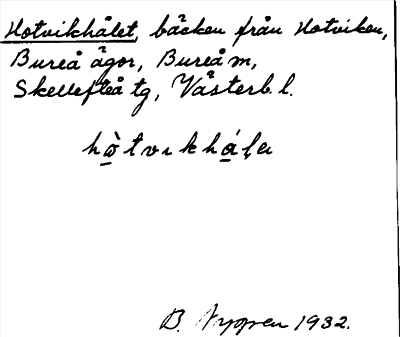 Hotvikhålet, bäcken från Hotviken,
Bureå ägor, Bureå m,
Skellefteå tg, Västerb. l.
hò̲tvıkhá̲ļa
B. Nygren 1932.